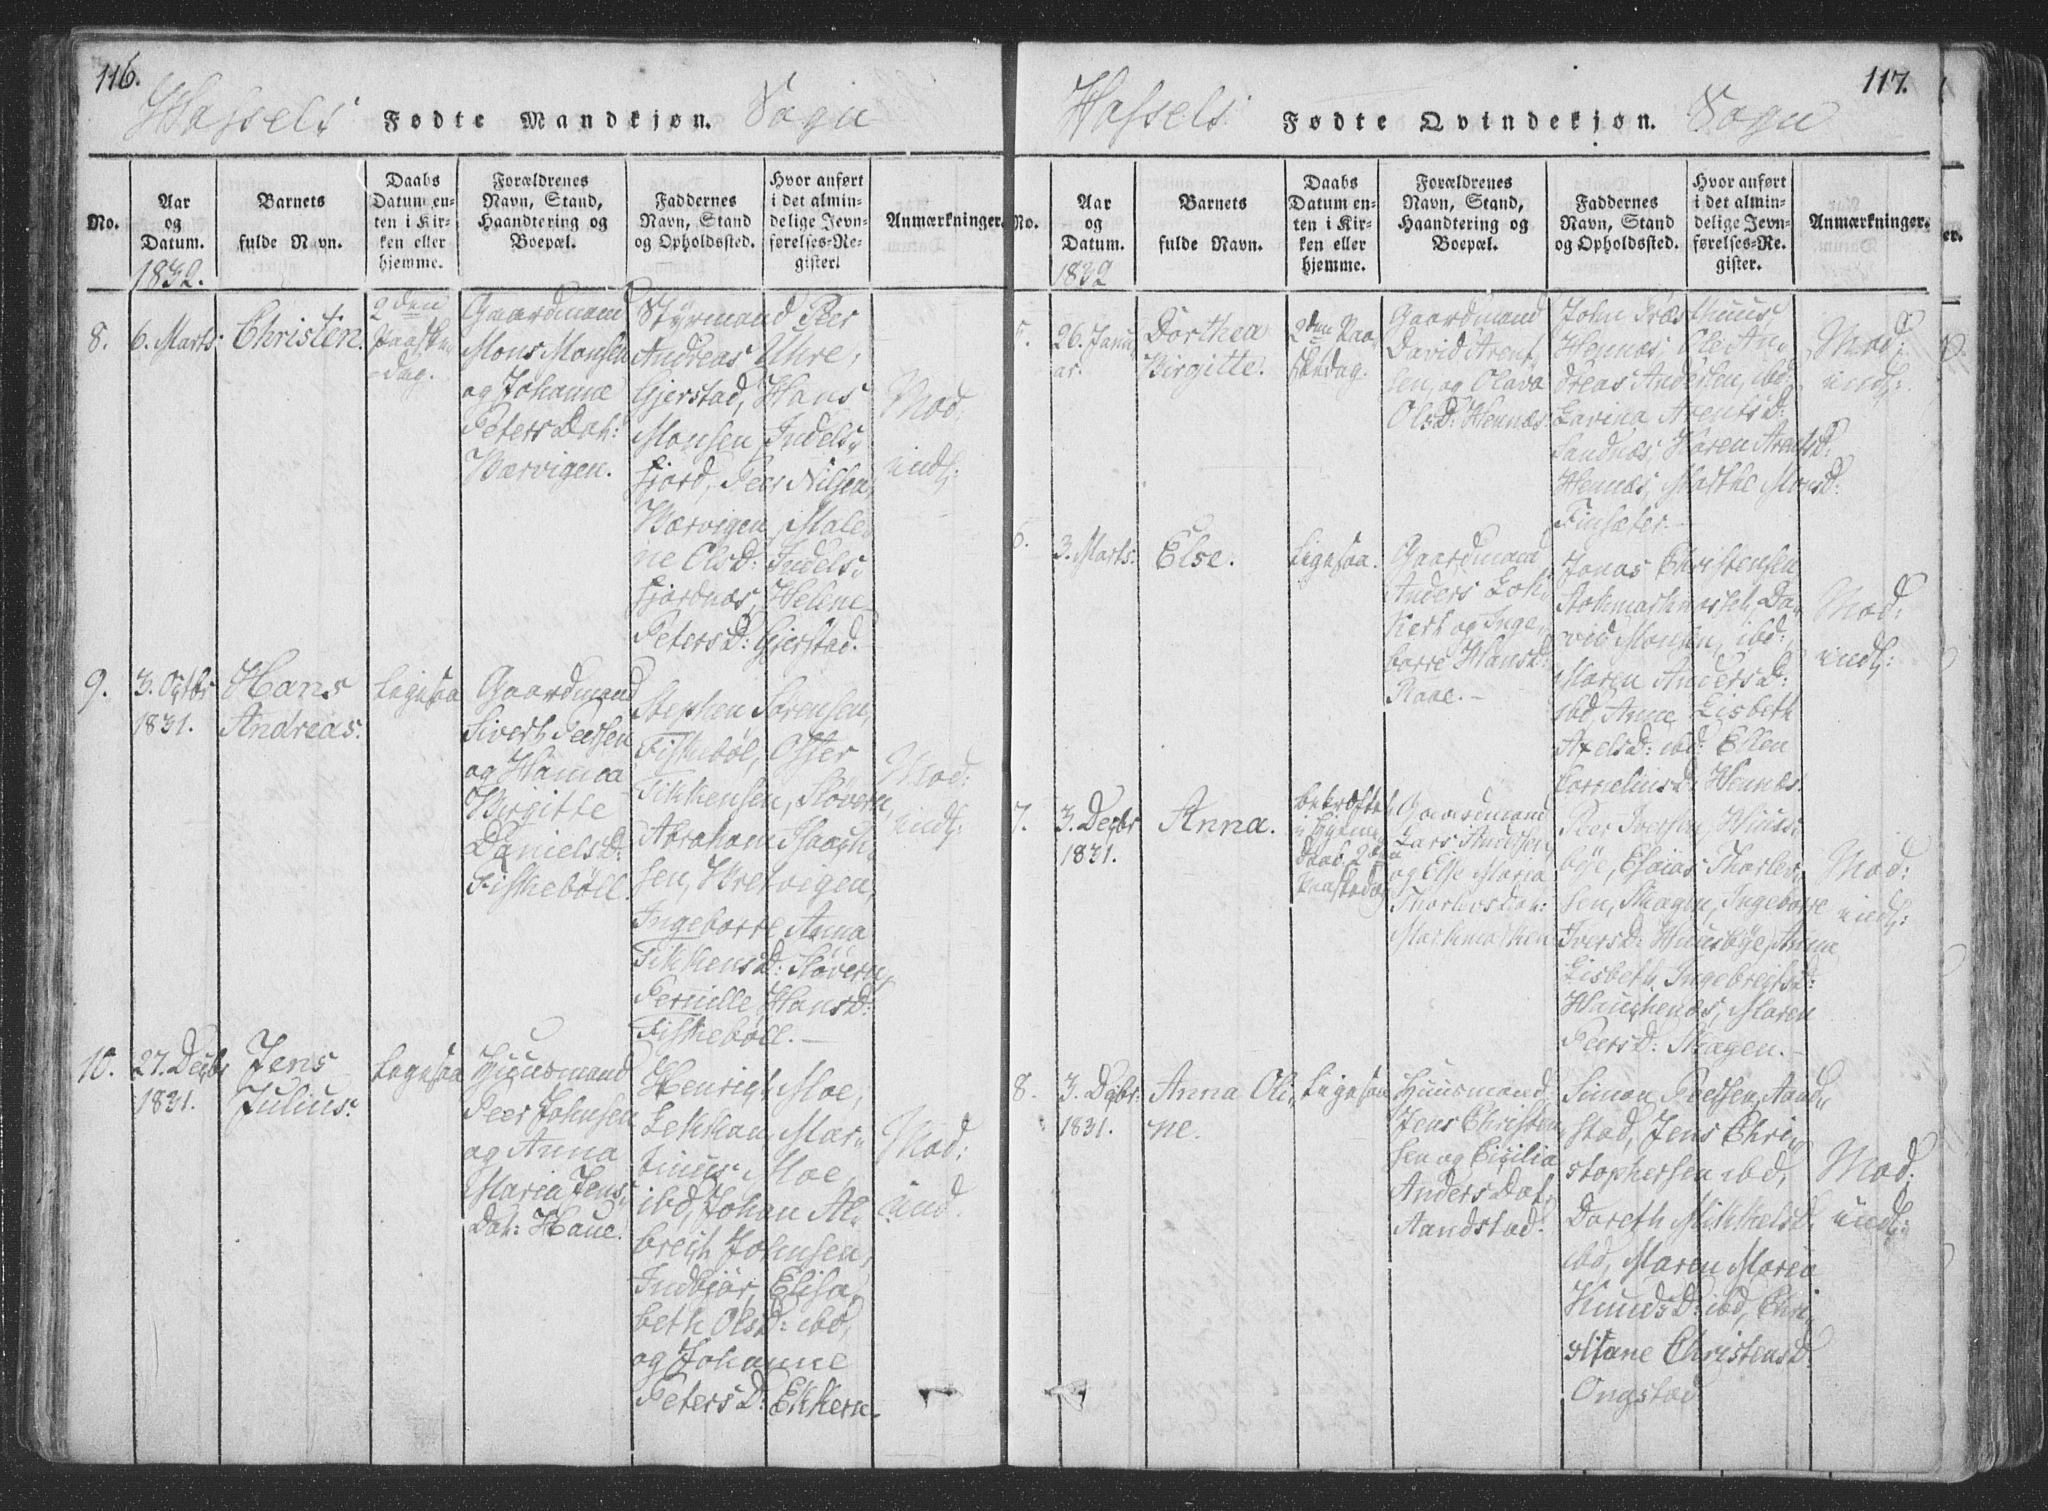 116.
Hassels Fødte Mandkjøn. Sogn
No.
Aar
og
Datum.
1832.
Barnets
fulde Navn.
Daabs
Datum en-
ten i Kir-
ken eller
hjemme.
Forældrenes
Navn, Stand,
Haandtering og
Boepæl.
Faddernes
Navn, Stand
og Opholdssted.
Hvor anført
i det almin-
delige Jevn-
førelses-Re-
gister.
Anmærkninger.
8.
6. Marts
Christen.
2den
Paaske
dag.
Gaardmand
Mons Monsen
og Johanne
Peters Dat:
Værvigen.
Styrmand Peer
Andreas Uhre,
Gjerstad, Hans
Monsen Indels
fjord, Peer Nilsen,
Værvigen, Male
ne Olsd: Indels
fjordnæs, Helene
Petersd: Gjerstad.
Mod:
indl:
9.
3. Octbr
1831.
Hans
Andreas.
Ligesaa
Gaardmand
Sivert Peersen
og Hanna
Birgitte
Danielsd:
Fiskebøll.
Stephen Sørensen,
Fiskebøl, Ofter
Tikkensen, Sløvern,
Abraham Isach
sen, Hvetvigen,
Ingeborre Anna
Tikkensd: Sløvern,
Pernille Hansd:
Fiskebøll.
Mod:
indl:
10.
27. Decbr
1831.
Jens
Julius.
Ligesaa
Huusmand
Peer Johnsen
og Anna
Maria Jens
Dat: Haue.
Henrich Moe,
Lekkan, Mar
tinus Moe,
ibd, Johan Al
brecht Johnsen,
Indbjør, Elisa
beth Olsd: ibd,
og Johanne
Peters D: Ekkern.
Mod:
ind.
117.
Hassels Fødte Qvindekjøn. Sogn
No.
Aar
og
Datum.
1832
Barnets
fulde Navn.
Daabs
Datum en-
ten i Kir-
ken eller
hjemme.
Forældrenes
Navn, Stand,
Haandtering og
Boepæl.
Faddernes
Navn, Stand
og Opholdssted.
Hvor anført
i det almin-
delige Jevn-
førelses-Re-
gister.
Anmærkninger.
5.
26. Janu
ar.
Dorthea
Birgitte.
2den Paa
skedag.
Gaardmand
David Arent
sen, og Olava
Olsd: Hennæs.
John Præsthuus
Hennæs, Ole An
dreas Andersen, ibd,
Lavina Arentsd:
Sandnæs, Karen Arentsd:
Hennæs, Marthe Monsd:
Finsæter.
Mod:
indl:
6.
3. Marts.
Else.
Ligesaa.
Gaardmand
Anders Lok
kert og Inge
borre Hansd:
Raae.
Jonas Christensen
Stokmarknæs, Da
vid Monsen, ibd:
Maren Andersd:
ibd, Anne Lisbeth
Axelsd: ibd: Ellen
Corneliusd: Hennæs.
Mod:
indl:
7.
3. Decbr
1831.
Anna.
bekræftet
i Hjeme
daab 2den
Paaskedag
Gaardmand
Lars Knudsen
og Else Maria
Thorlevsdat:
Markmarken
Peer Iversen, Huus
bye, Esaias Thorlev
sen, Skagen, Ingeborre
Iversd: Huusbye, Anna
Lisbeth Ingebreitsd:
Hauchenæs, Maren
Peersd: Skagen.
Mod:
indl:
8.
3. Decbr:
1831.
Anna Oli
ne.
Ligesaa
Huusmand,
Jens Christen
sen og Cicilia
Anders Dat,
Aandstad.
Simon Peersen, Aand
stad, Jens Chri
stophersen ibd,
Dareth Mikkelsd.
ibd, Maren Maria
Knuds D: ibd, Chri
stiane Christensd:
Ongstad
Mod:
indl:
er.